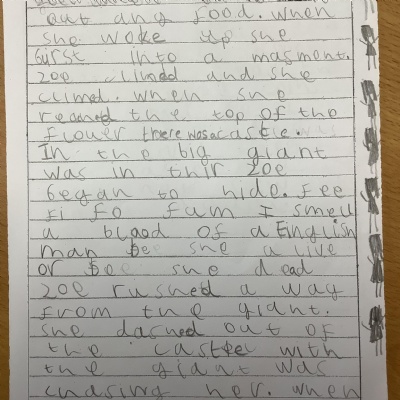 out any food. when
she woke up she
burst into a masment.
zoe climed and she
climed. when she
reached the top of the
flower there was a castle.
In the big giant
was in thir zoe
began to hide. Fee
fi fo fum I smell
a blood of a Einglish
man bee she a live
or bee she dead
zoe rushed a way
from the giant.
she dashed out of
the castle with
the giant was
chasing her. when